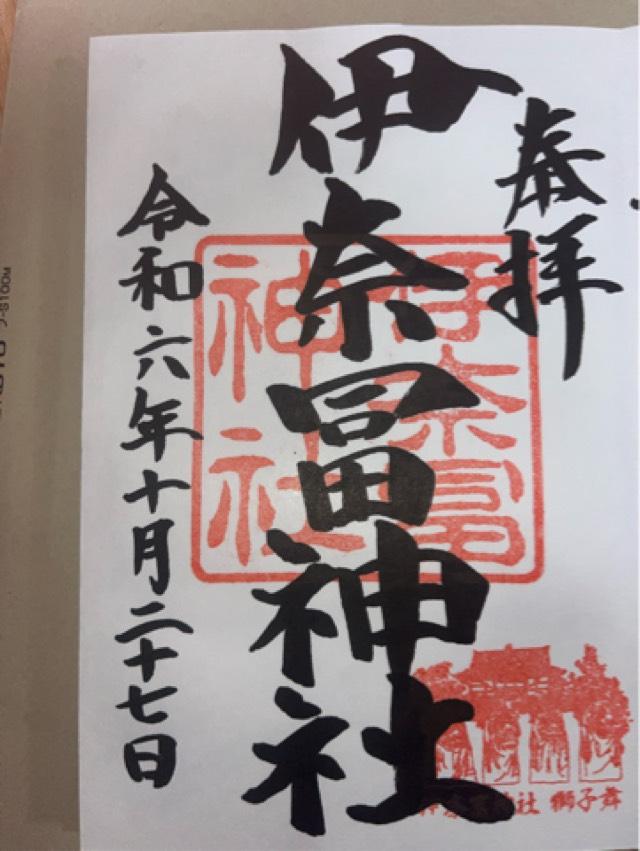 奉拝
伊奈冨神社
令和六年十月二十七日
伊奈冨
神社
伊奈冨神社 獅子舞